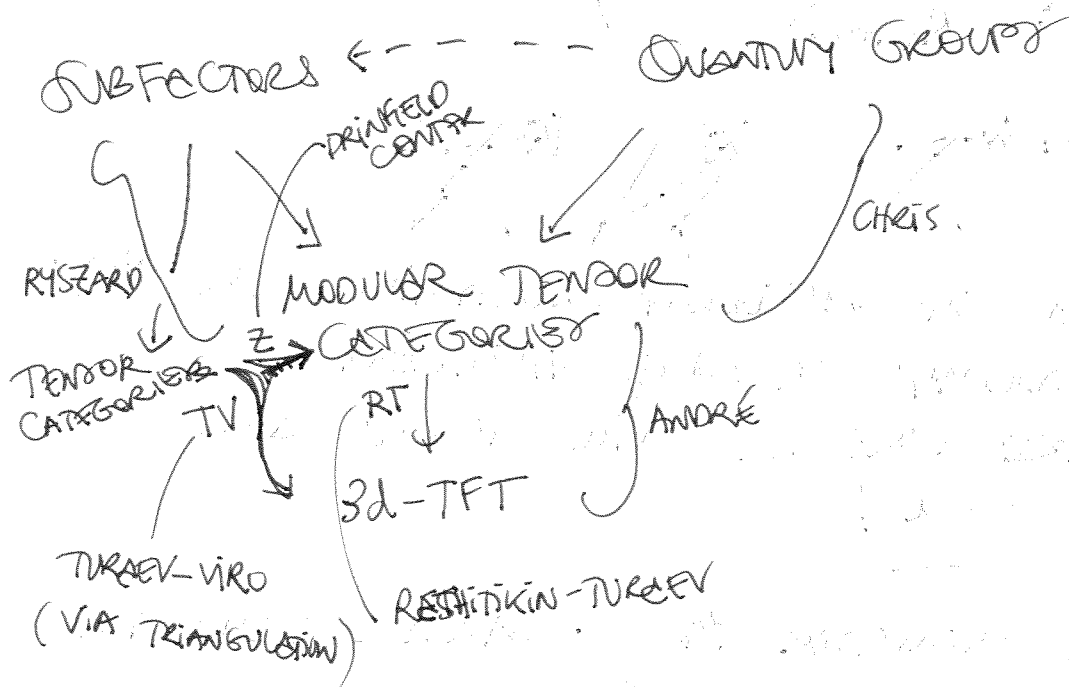 SUBFACTORS
QUANTUM GROUPS
DRINFELD
CENTER
CHRIS.
RYSZARD
MODULAR TENSOR
CATEGORIES
Z
TENSOR
CATEGORIES
TV
RT
ANDRÉ
3d-TFT
TURAEV-VIRO
(VIA TRIANGULATION)
RESHITIKIN-TURAEV